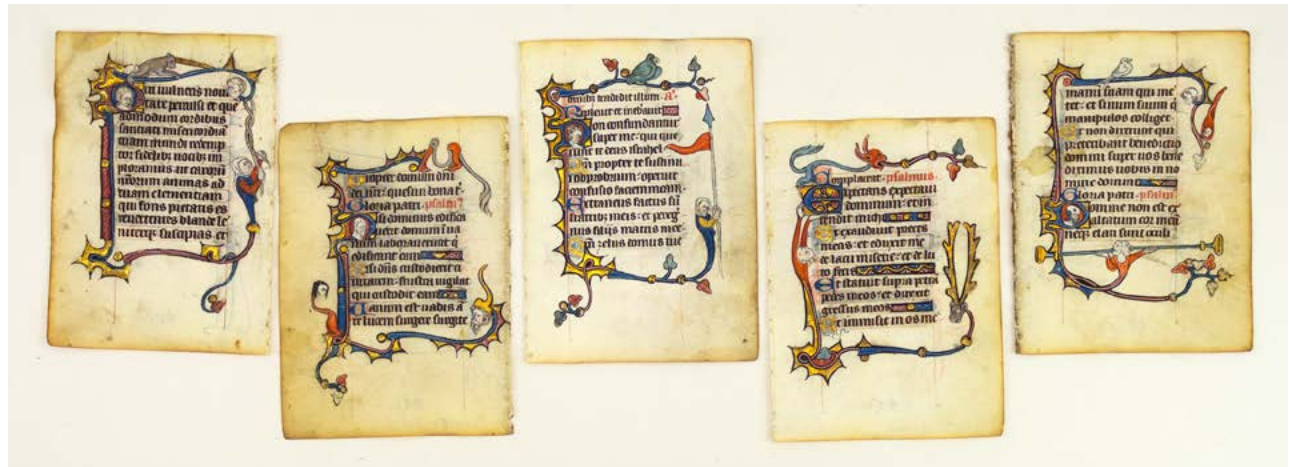 cit uulneris noui
tate perculsi et que
admodum cordibus
sauciati misericordiā
tuam mundi redemp
tor flebilib; uocib; im
ploramus ut caroꝝ
nr̄orum animas ad
tuam clementiam
qui fons pietatis es
reuertentes blande le
niterq; suscipias et
Propter domum dn̄i
dei nr̄i: quesiui bona t̄.
Gloria patri. psalm'
Nisi dominus edifica
uerit domum: in ua
num laborauerunt q̄
edificant eam
Nisi dn̄s custodierit ci
uitatem: frustra uigilat
qui custodit eam
Uanum est uobis a
te lucem surgere surgite
tendidit illum. A.
Repleuit et inebriauit
Non confundantur
super me: qui que
runt te deus israhel
Qm̄ propter te sustinui
inobprobrium: operuit
confusio faciem meam.
Extraneus factus sū
fratrib; meis: et pereg
nus filijs matris mee
Qm̄ zelus domus tue
Complaceat. psalmus.
Expectans expectaui
dominum: et in
tendit michi
Et exaudiuit preces
meas: et eduxit me
de lacu miserie: et de lu
to fecis
Et statuit supra petrā
pedes meos: et direxit
gressus meos
Et immisit in os me
manū suam qui me
tet: et sinum suum q̄
manipulos colliget
Et non dixerunt qui
preteribant benedictio
domini super uos bene
diximus uobis in no
mine domini
Gloria patri. psalm'
Domine non est ex
altatum cor meū
neq; elati sunt oculi